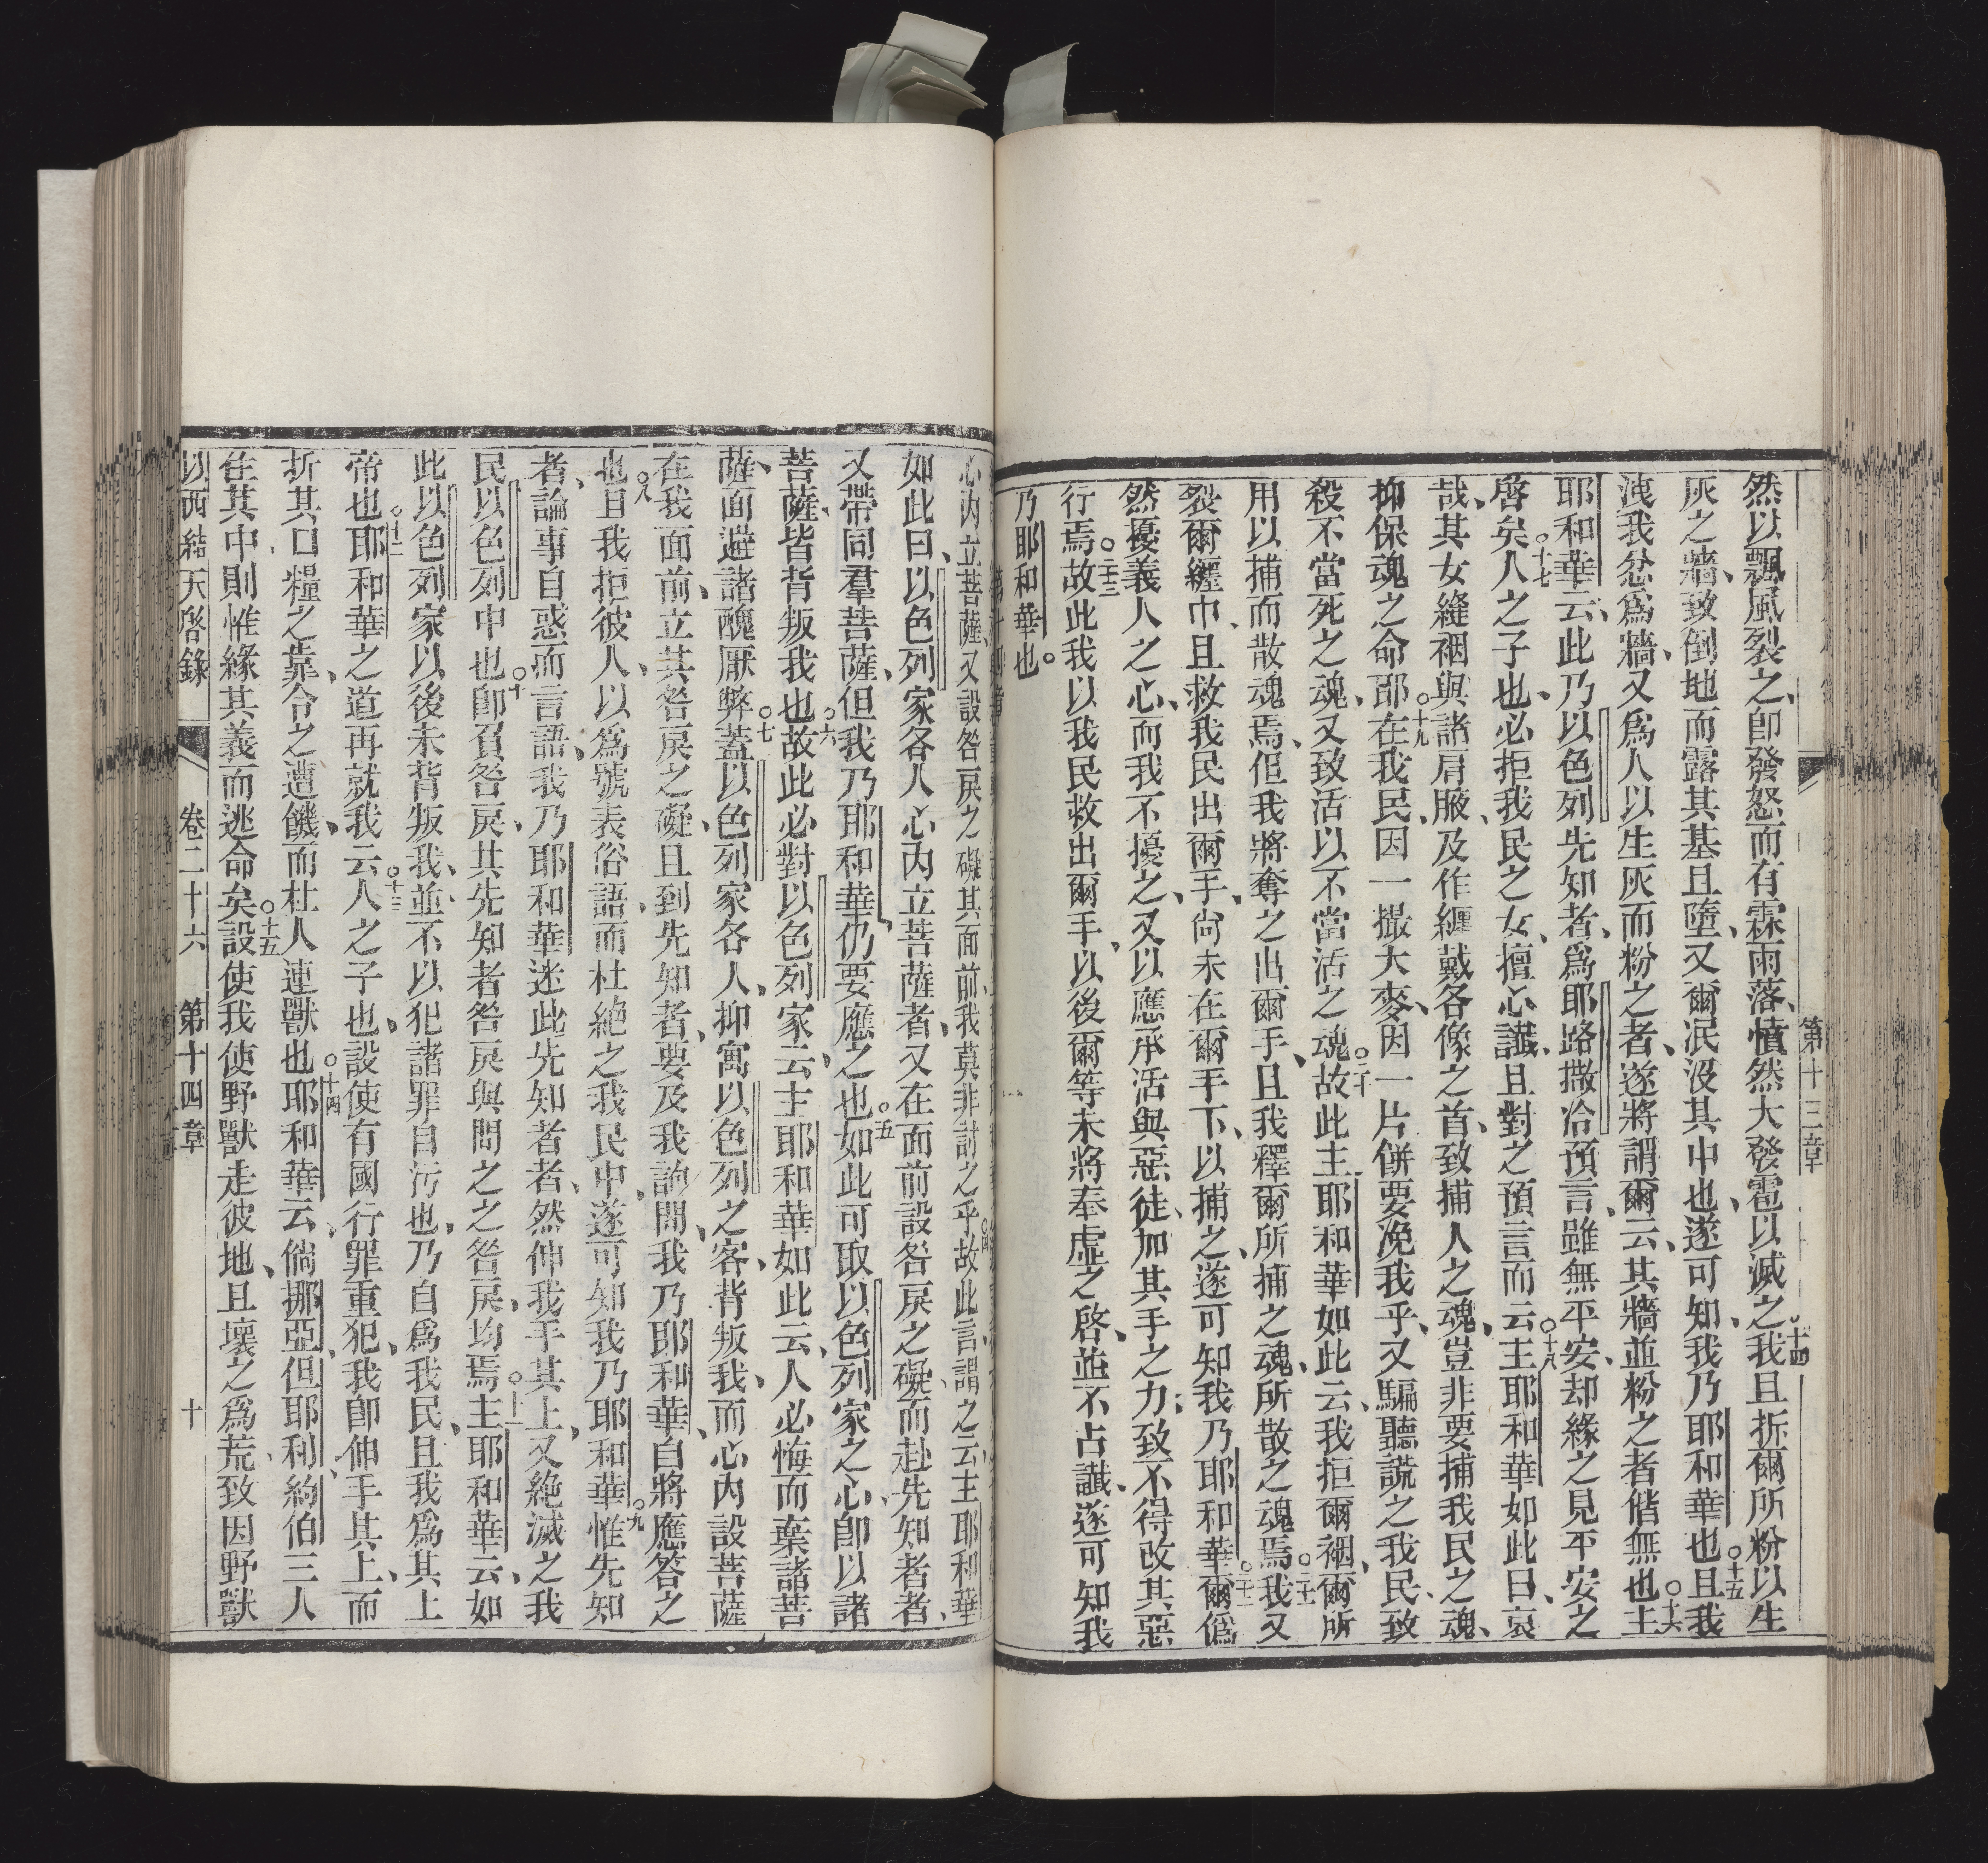 第十三章
然以飄風裂之、卽發怒而有霖雨落、憤然大發雹以滅之○十四我且拆爾所粉以生
灰之牆、致倒地而露其基且墮、又爾泯沒其中也、遂可知、我乃耶和華也○十五且我
洩我忿爲牆、又爲人以生灰而粉之者、遂將謂爾云、其牆並粉之者偕無也○十六主
耶和華云、此乃以色列先知者、爲耶路撒冾預言、雖無平安、却緣之見平安之
啓矣○十七人之子也、必拒我民之女、擅心讖、且對之預言而云○十八主耶和華如此曰、哀
哉、其女縫裀與諸肩腋、及作纏戴各像之首、致捕人之魂、豈非要捕我民之魂、
抑保魂之命耶○十九在我民、因一撮大麥、因一片餅要浼我乎、又騙聽謊之我民、致
殺不當死之魂、又致活以不當活之魂○二十故此主耶和華如此云、我拒爾裀、爾所
用以捕而散魂焉、但我將奪之出爾手、且我釋爾所捕之魂、所散之魂焉○二十一我又
裂爾纏巾、且救我民出爾手、尙未在爾手下、以捕之、遂可知我乃耶和華○二十二爾僞
然擾義人之心、而我不擾之、又以應承活與惡徒、加其手之力、致不得改其惡
行焉○二十三故此我以我民救出爾手、以後爾等未將奉虛之啓、並不占讖、遂可知我
乃耶和華也。
心內立菩薩、又設咎戾之礙其面前、我莫非討之乎○四故此言、謂之云、主耶和華
如此曰、以色列家各人、心內立菩薩者、又在面前設咎戾之礙、而赴先知者者、
又帶同羣菩薩、但我乃耶和華、仍要應之也○五如此可取以色列家之心、卽以諸
菩薩、皆背叛我也○六故此必對以色列家云、主耶和華如此云、人必悔而棄諸菩
薩、面避諸醜厭弊○七蓋以色列家各人、抑寓以色列之客、背叛我、而心內設菩薩
在我面前、立其咎戾之礙、且到先知者、要及我詢問、我乃耶和華、自將應答之
也○八且我拒彼人、以爲號表俗語、而杜絕之我民中、遂可知我乃耶和華○九惟先知
者、論事自惑而言語、我乃耶和華迷此先知者者、然伸我手其上、又絕滅之我
民以色列中也○十卽負咎戾、其先知者咎戾與問之之咎戾、均焉○十一主耶和華云、如
此以色列家以後未背叛我、並不以犯諸罪自污也、乃自爲我民、且我爲其上
帝也○十二耶和華之道再就我云○十三人之子也、設使有國行罪重犯、我卽伸手其上、而
折其口糧之靠、令之遭饑、而杜人連獸也○十四耶和華云、倘挪亞、但耶利、約伯三人
在其中則惟緣其義而逃命矣○十五設使我使野獸走彼地、且壞之爲荒、致因野獸
以西結天啓錄 卷二十六 第十四章 十